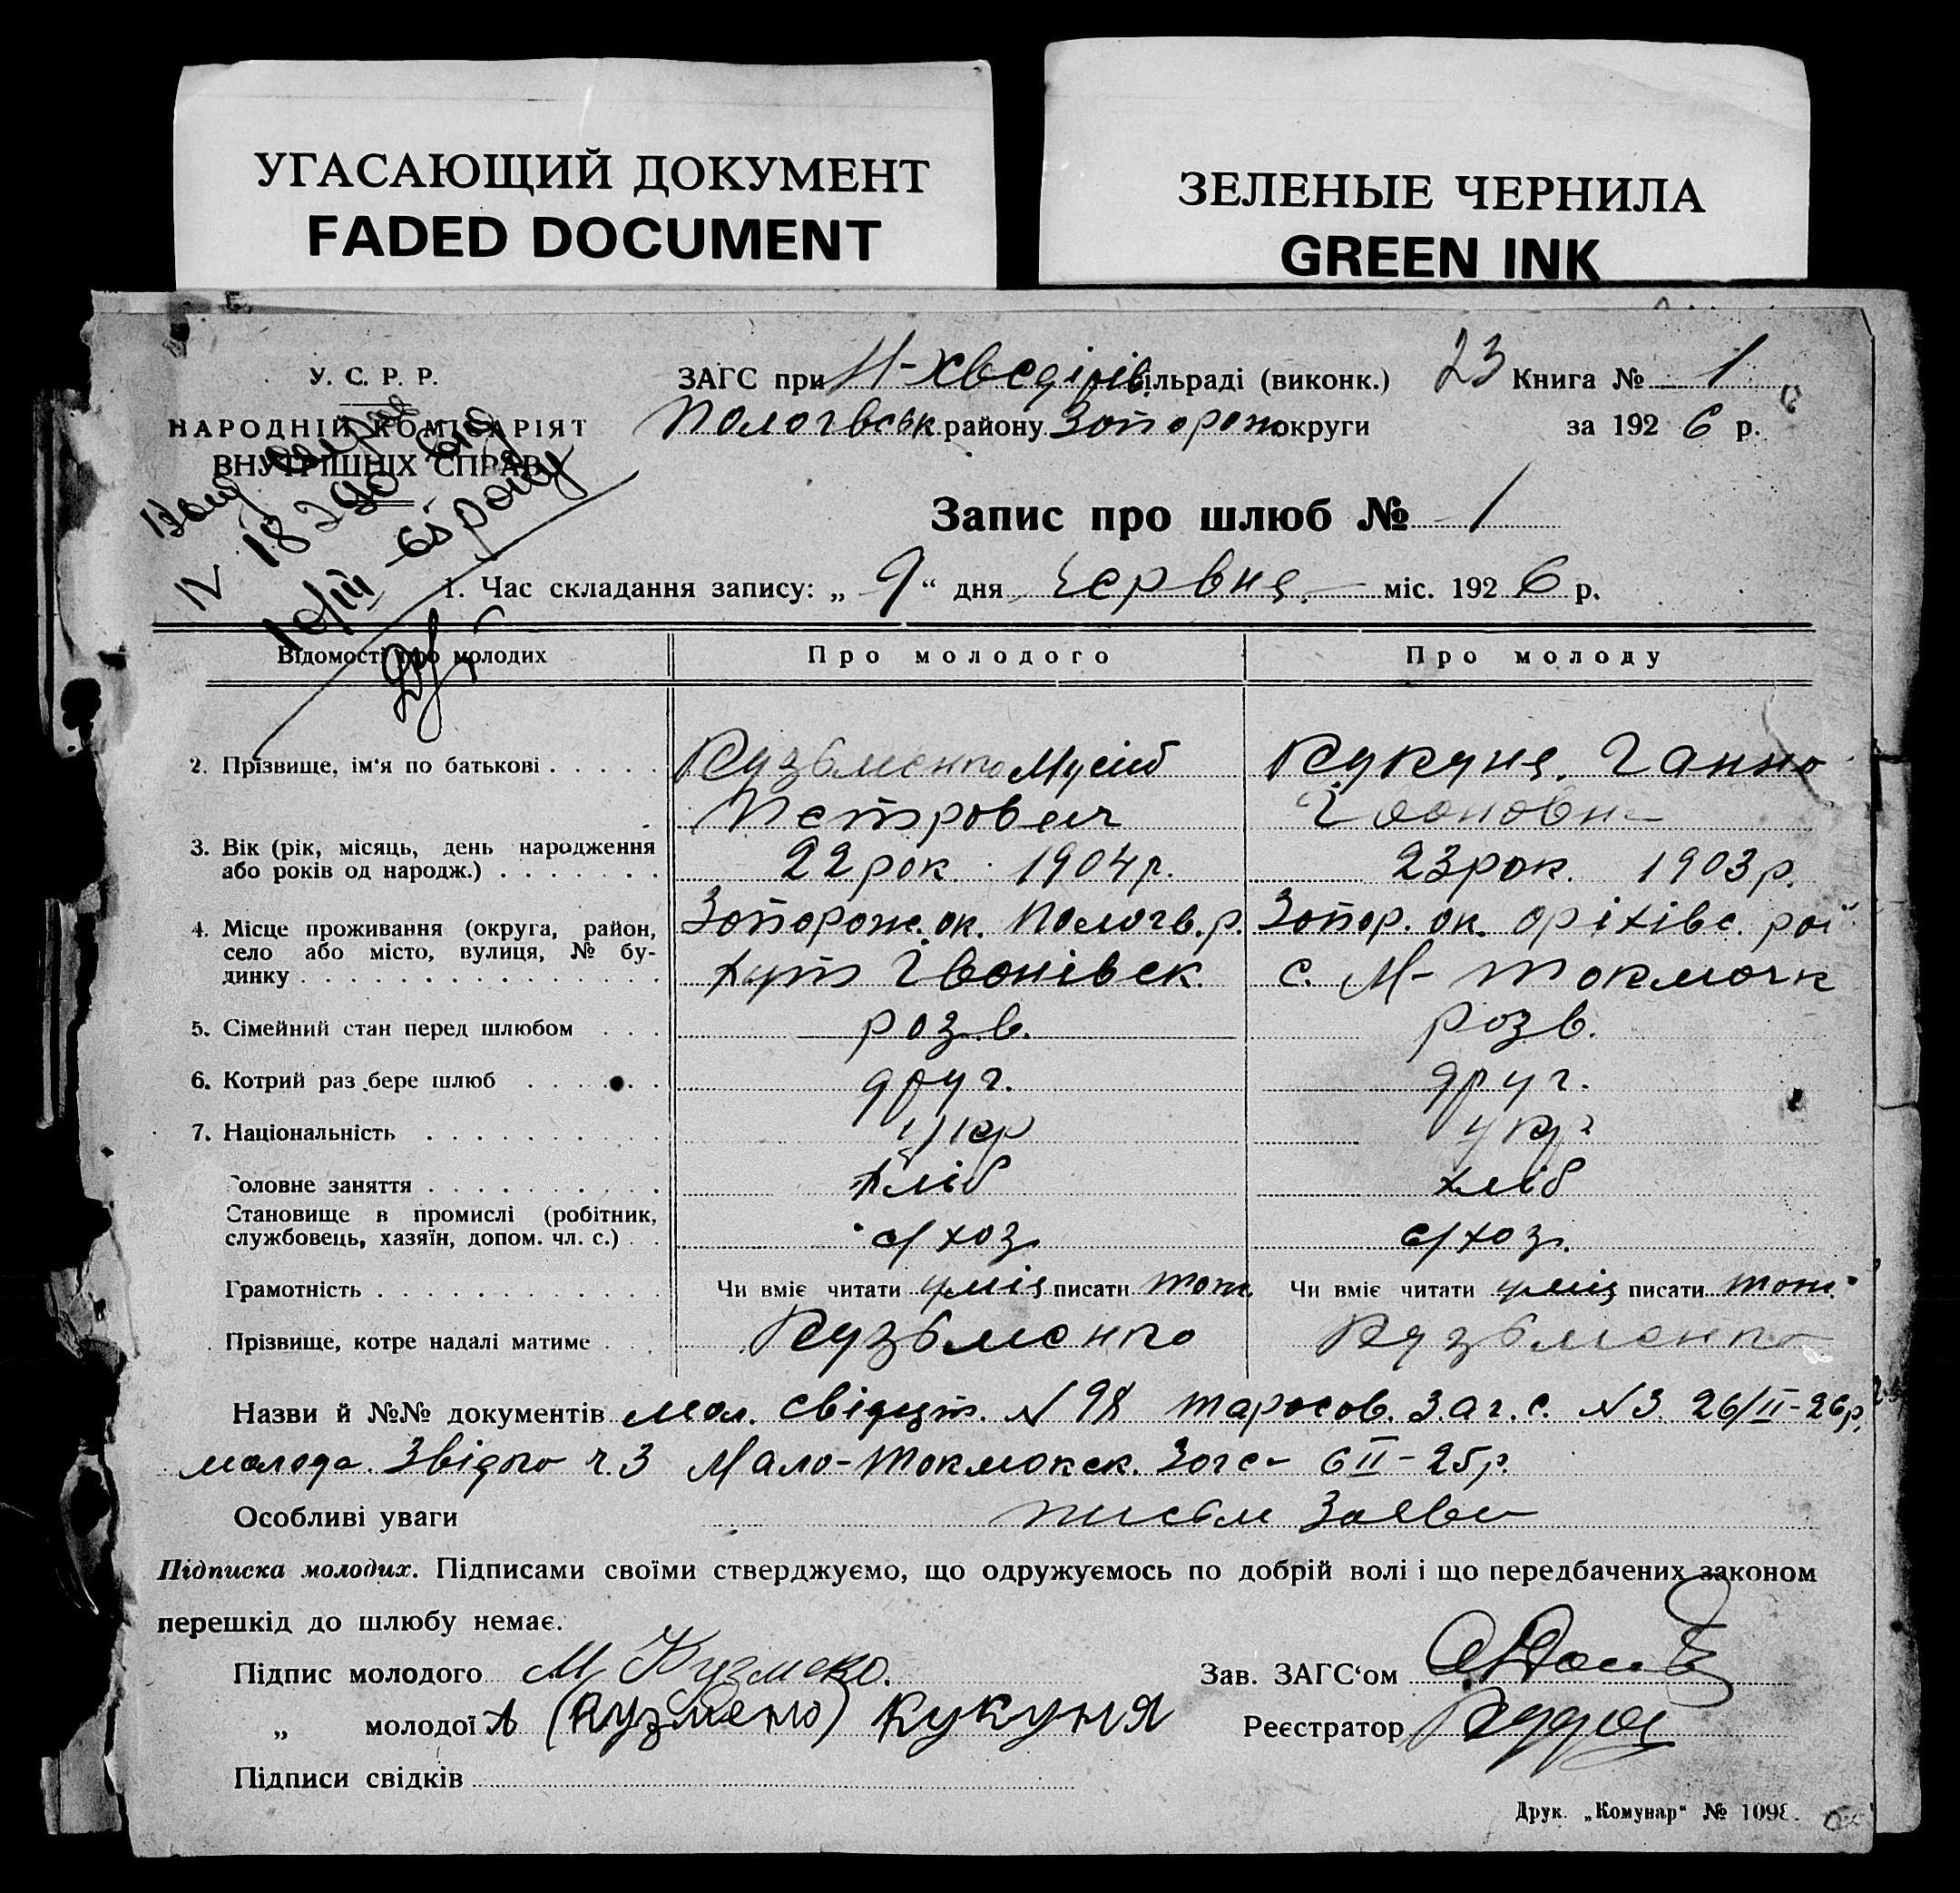 УГАСАЮЩИЙ ДОКУМЕНТ
FADED DOCUMENT
ЗЕЛЕНЫЕ ЧЕРНИЛА
GREEN INK
У. С. Р. Р.
НАРОДНІЙ КОМІСАРІЯТ
ВНУТРІШНІХ СПРАВ
ЗАГС при Н-Хведірів. сільраді (виконк.) 23 Книга № 1
Пологвськ району Запорож округи за 1926 р.
Запис про шлюб № 1
1. Час складання запису: „ 9 “ дня червня. міс. 1926 р.
Відомості про молодих Про молодого Про молоду
2. Прізвище, ім'я по батькові Кузьменко Мусій Кукуня. Ганна
Петрович
3. Вік (рік, місяць, день народження
або років од народж.) 22 рок 1904 р. 23 рок. 1903 р.
4. Місце проживання (округа, район, Запорож. ок. Пологв. р. Запор. ок. Оріхівс. рай
село або місто, вулиця, № бу-
динку хут Івонівск. с. М- Токмачк
5. Сімейний стан перед шлюбом розв. розв.
6. Котрий раз бере шлюб друг. друг.
7. Національність укр укр
Головне заняття хліб хліб
Становище в промислі (робітник,
службовець, хазяїн, допом. чл. с.) с/хоз с/хоз.
Грамотність Чи вміє читати уміє писати тож Чи вміє читати уміє писати тож.
Прізвище, котре надалі матиме Кузьменко Кузьменко
Назви й №№ документів мол. свідоцт. N 98 Тарасов. З.а г. с. N3 26/II-26 р.
молода Звідки ч. 3 Мало-Токмакск. Загса 6 II-25 р.
Особливі уваги письм Заяви
Підписка молодих. Підписами своїми стверджуємо, що одружуємось по добрій волі і що передбачених законом
перешкід до шлюбу немає.
Підпис молодого М Кузмеко. Зав. ЗАГС'ом
„ молодої А (Кузмено) Кукуня Реєстратор
Підписи свідків
Друк. „Комунар“ №